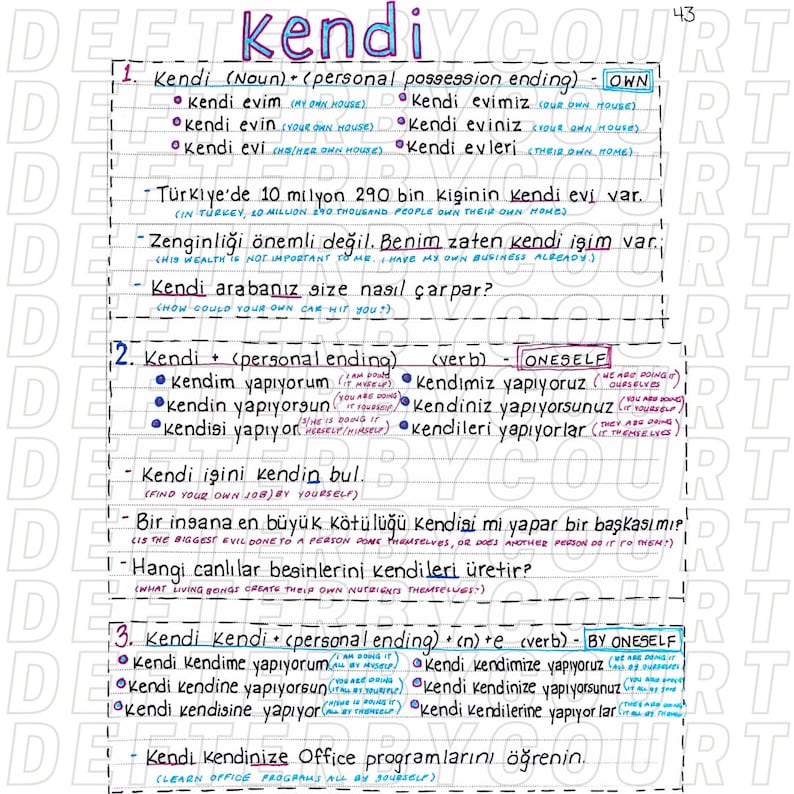 43
kendi
1. Kendi (Noun) + (personal possession ending) - OWN
Kendi evim (MY OWN HOUSE) Kendi evimiz (OUR OWN HOUSE)
Kendi evin (YOUR OWN HOUSE) Kendi eviniz (YOUR OWN HOUSE)
Kendi evi (HIS/HER OWN HOUSE) Kendi evleri (THEIR OWN HOME)
- Türkiye'de 10 milyon 290 bin kişinin kendi evi var.
(IN TURKEY, 10 MILLION 290 THOUSAND PEOPLE OWN THEIR OWN HOME)
- Zenginliği önemli değil. Benim zaten kendi işim var.
(HIS WEALTH IS NOT IMPORTANT TO ME. I HAVE MY OWN BUSINESS ALREADY.)
- Kendi arabanız size nasıl çarpar?
(HOW COULD YOUR OWN CAR HIT YOU?)
2. Kendi + (personal ending) (verb) - ONESELF
Kendim yapıyorum (I AM DOING IT MYSELF) Kendimiz yapıyoruz (WE ARE DOING IT OURSELVES)
Kendin yapıyorsun (YOU ARE DOING IT YOURSELF) Kendiniz yapıyorsunuz (YOU ARE DOING IT YOURSELF)
Kendisi yapıyor (S/HE IS DOING IT HERSELF/HIMSELF) Kendileri yapıyorlar (THEY ARE DOING IT THEMSELVES)
- Kendi işini kendin bul.
(FIND YOUR OWN JOB) BY YOURSELF)
- Bir insana en büyük kötülüğü kendisi mi yapar bir başkası mı?
(IS THE BIGGEST EVIL DONE TO A PERSON DONE THEMSELVES, OR DOES ANOTHER PERSON DO IT TO THEM?)
- Hangi canlılar besinlerini kendileri üretir?
(WHAT LIVING BEINGS CREATE THEIR OWN NUTRIENTS THEMSELVES?)
3. Kendi Kendi + (personal ending) + (n) + e (verb) - BY ONESELF
Kendi kendime yapıyorum (I AM DOING IT ALL BY MYSELF) Kendi kendimize yapıyoruz (WE ARE DOING IT ALL BY OURSELVES)
Kendi kendine yapıyorsun (YOU ARE DOING IT ALL BY YOURSELF) Kendi kendinize yapıyorsunuz (YOU ARE DOING IT ALL BY
Kendi kendisine yapıyor (H/SHE IS DOING IT ALL BY THEMSELF) Kendi kendilerine yapıyorlar (THEY ARE DOING IT ALL BY
- Kendi kendinize Office programlarını öğrenin.
(LEARN OFFICE PROGRAMS ALL BY YOURSELF)
DEFTERBYCOURT
DEFTERBYCOURT
DEFTERBYCOURT
DEFTERBYCOURT
DEFTERBYCOURT
DEFTERBYCOURT
DEFTERBYCOURT
DEFTERBYCOURT
DEFTERBYCOURT
DEFTERBYCOURT